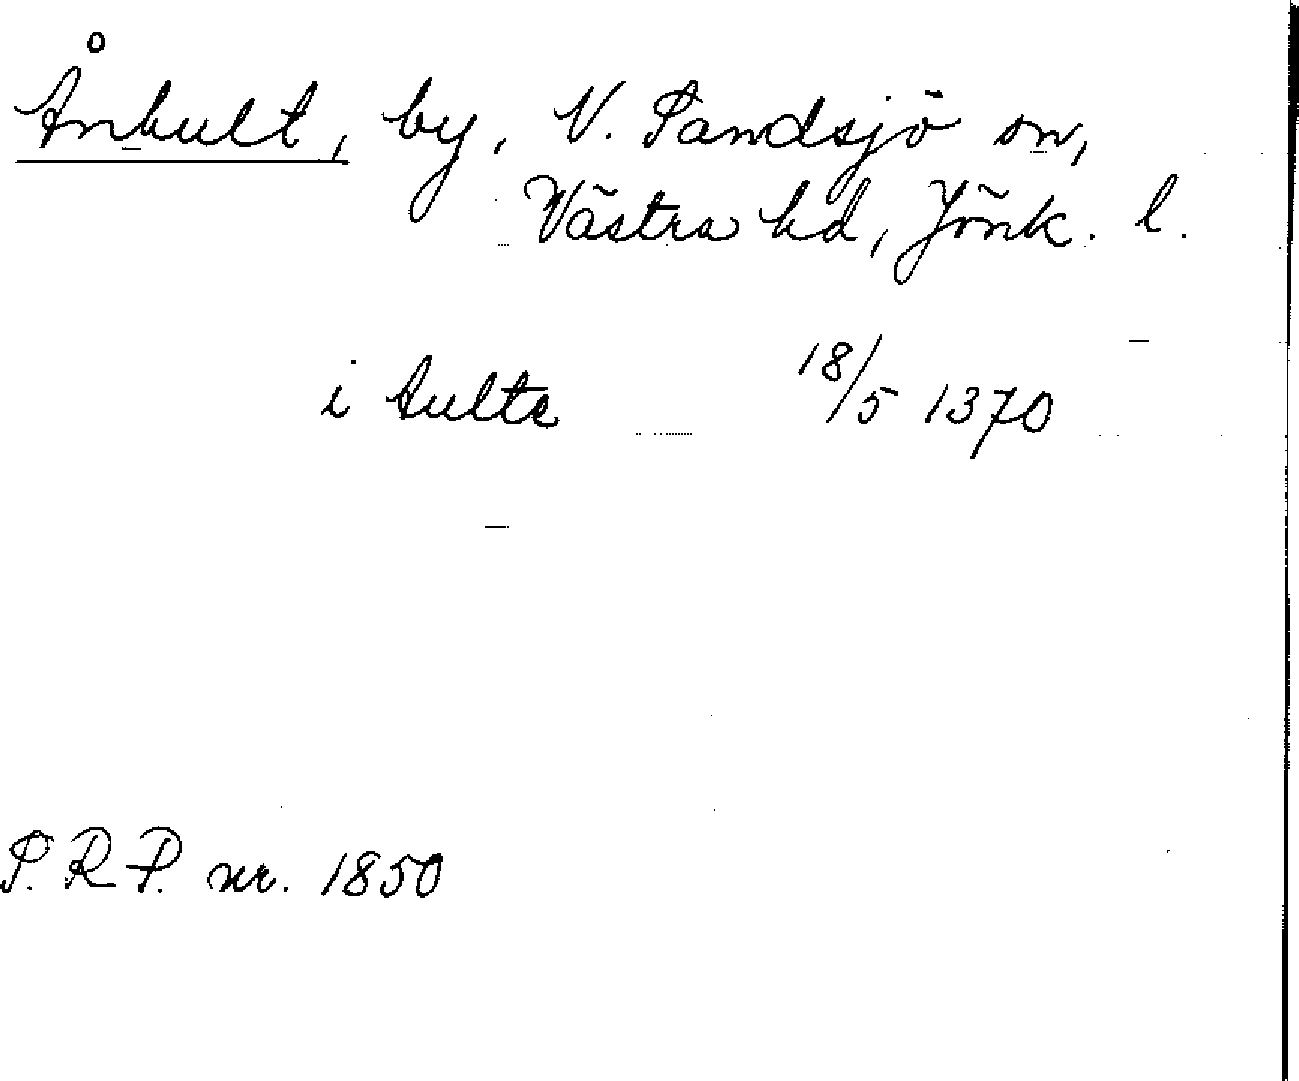 Ånhult, by, N. Sandsjö sn,
Västra hd, Jönk. l.
i Aulta 18/5 1370
S. R. P. nr. 1850